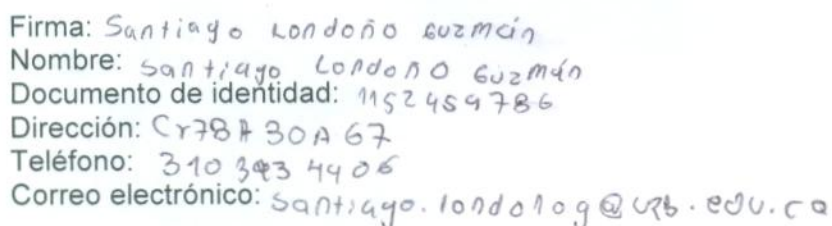 Firma: Santiago Londoño Guzmán
Nombre: Santiago Londoño Guzmán
Documento de identidad: 1152459786
Dirección: Cr78A 30A 67
Teléfono: 310 393 4406
Correo electrónico: santiago.londonog@usb.edu.co